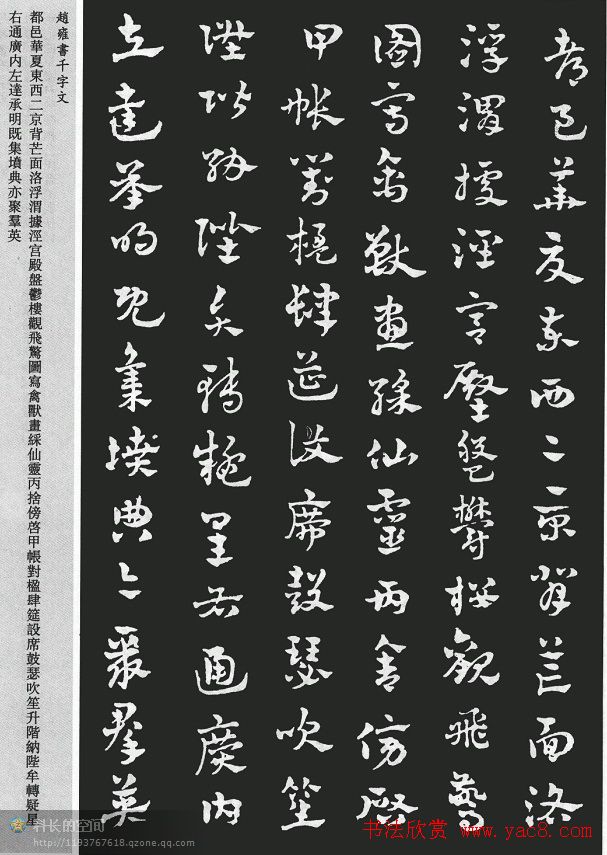 都邑華夏東西二京背芒面洛
浮渭據涇宮殿盤鬱樓觀飛驚
圖寫禽獸畫綵仙靈丙舍傍啓
甲帳對楹肆筵設席鼓瑟吹笙
陞階納陛弁轉疑星右通廣内
左達承明既集墳典亦聚羣英
趙雍書千字文
都邑華夏東西二京背芒面洛浮渭據涇宮殿盤鬱樓觀飛驚圖寫禽獸畫綵仙靈丙捨傍啓甲帳對楹肆筵設席鼓瑟吹笙升階納陛牟轉疑星
右通廣内左達承明既集墳典亦聚羣英
科长的空间
http://1193767618.qzone.qq.com
书法欣赏 www.yac8.com